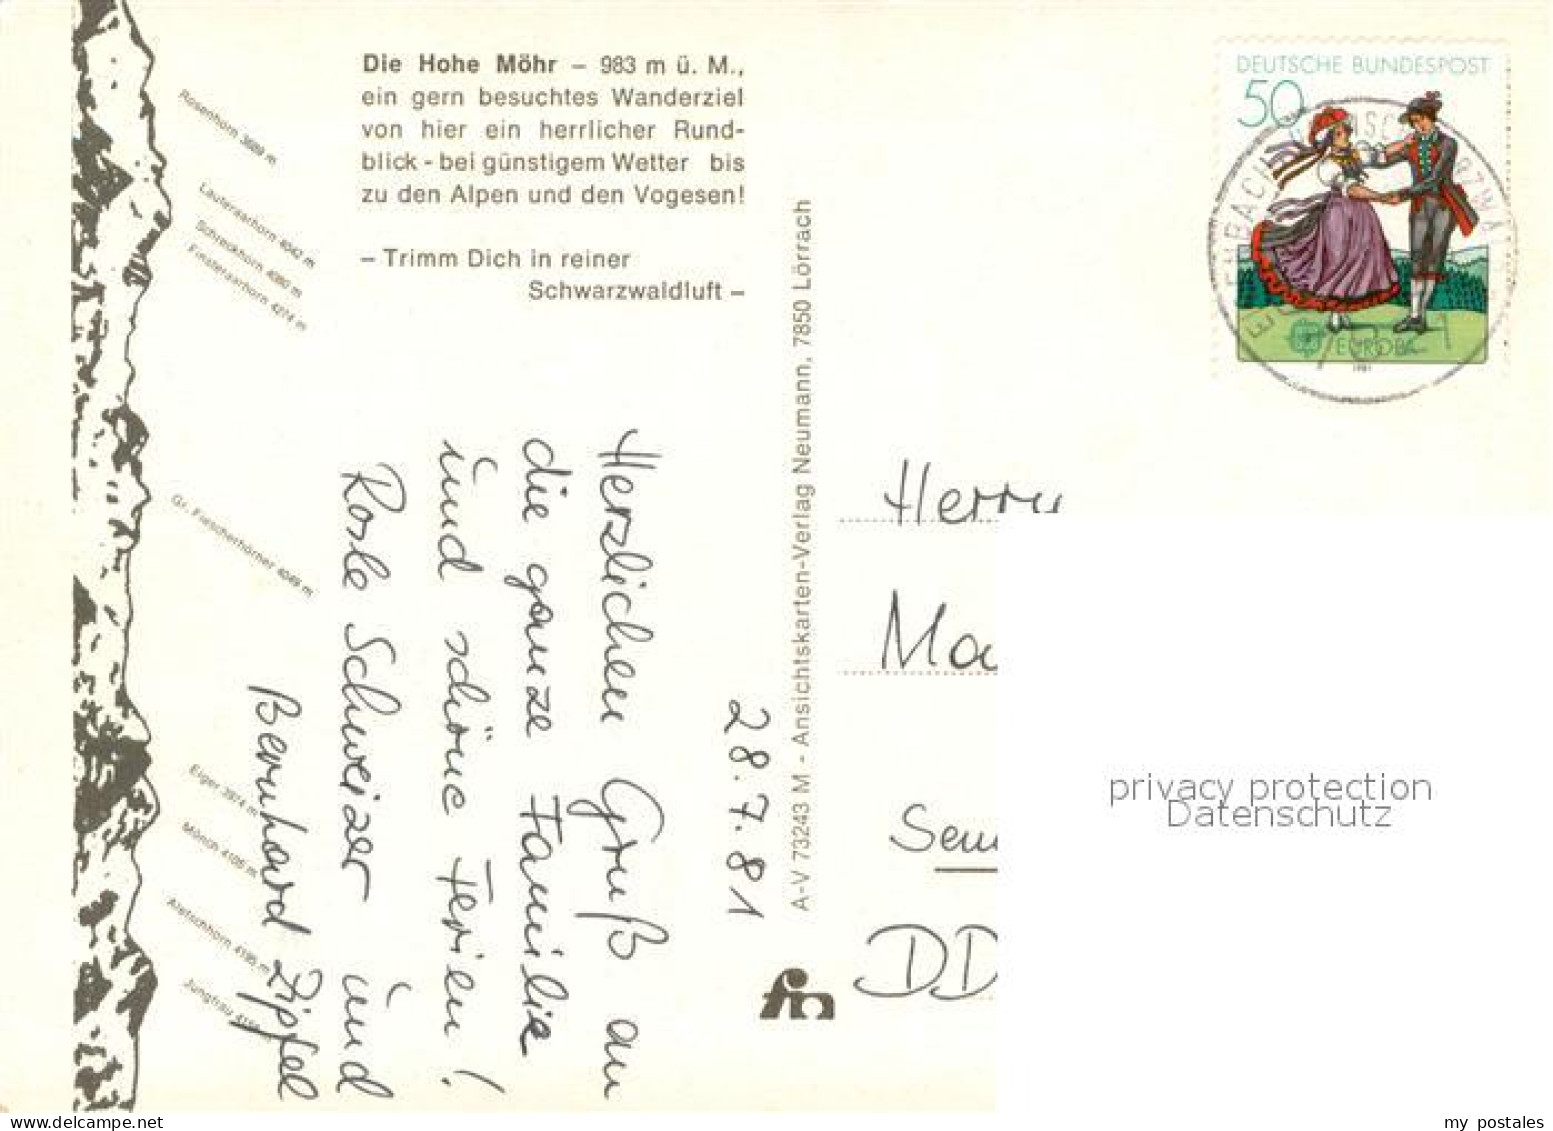 Die Hohe Möhr – 983 m ü. M.,
ein gern besuchtes Wanderziel
von hier ein herrlicher Rund-
blick - bei günstigem Wetter bis
zu den Alpen und den Vogesen!
– Trimm Dich in reiner
Schwarzwaldluft –
Rosenhorn 3689 m
Lauteraarhorn 4042 m
Schreckhorn 4080 m
Finsteraarhorn 4274 m
Gr. Fiescherhörner 4049 m
Eiger 3974 m
Mönch 4105 m
Aletschhorn 4195 m
Jungfrau
28.7.81
Herzlichen Gruß an
die ganze Familie
und schöne Ferien!
Rosle Schweizer und
Bernhard Zipfel
A-V 73243 M - Ansichtskarten-Verlag Neumann, 7850 Lörrach
fm
DEUTSCHE BUNDESPOST
50
EUROPA
1981
Herrn
Ma
Sem
DD
privacy protection
Datenschutz
my postales